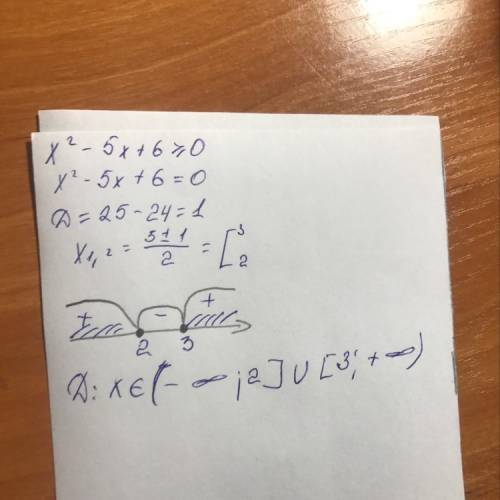 x² - 5x + 6 ≥ 0
x² - 5x + 6 = 0
Д = 25 - 24 = 1
x₁,₂ = (5 ± 1)/2 = [ 3 2
+ - +
2 3
Д: x ∈ (-∞; 2] ∪ [3; +∞)